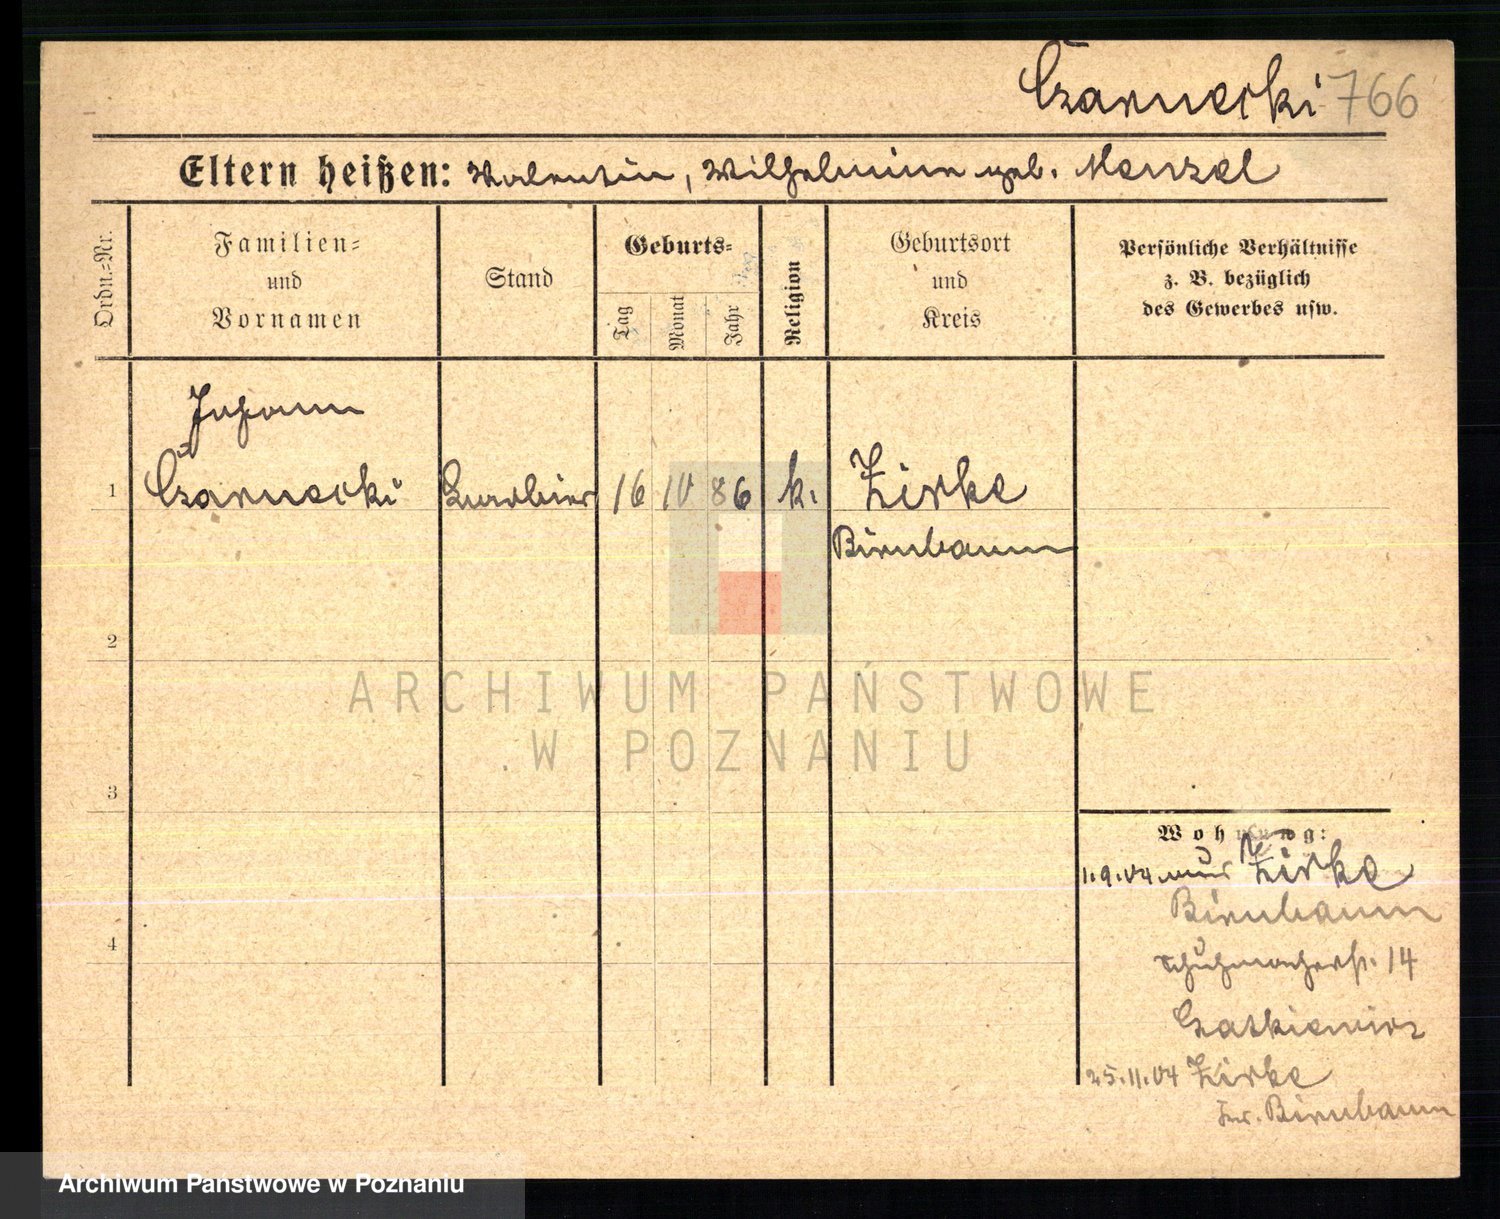 Czarnecki 766
Eltern heißen: Valentin, Wilhelmine geb. Menzel
Ordn.=Nr.
Familien=
und
Vornamen
Stand
Geburts=
Tag
Monat
Jahr
Religion
Geburtsort
und
Kreis
Persönliche Verhältnisse
z. B. bezüglich
des Gewerbes usw.
Johann
1 Czarnecki Barbier 16 IV 86 k. Zirke
Birnbaum
2
ARCHIWUM PAŃSTWOWE
W POZNANIU
3
Wohnung:
1.9.04 aus Zirke
Birnbaum
Schuhmacherst. 14
25.11.04 Zirke
Kr. Birnbaum
4
Archiwum Państwowe w Poznaniu